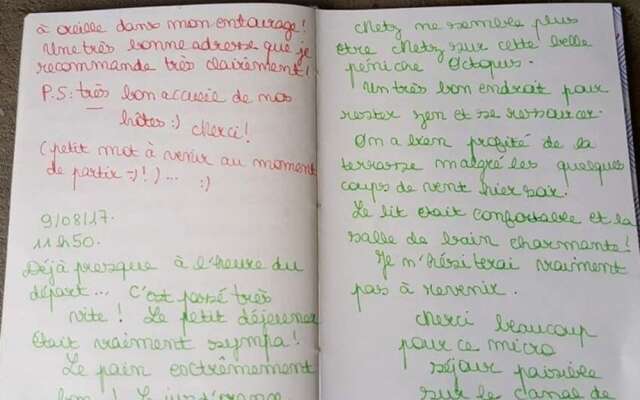 à oreille dans mon entourage!
Une très bonne adresse que je
recommande très clairement!
P.S: très bon accueil de nos
hôtes :) Merci!
(petit mot à venir au moment
de partir =)!)... :)
9/08/17.
11h50.
Déjà presque à l'heure du
départ... C'est passé très
vite! Le petit déjeuner
était vraiment sympa!
Le pain extrêmement
bon! Le jus d'orange
Metz me semble plus
être Metz sur cette belle
péniche Octopus.
Un très bon endroit pour
rester zen et se ressourcer.
On a bien profité de la
terrasse malgré les quelques
coups de vent hier soir.
Le lit était confortable et la
salle de bain charmante!
Je n'hésiterai vraiment
pas à revenir.
Merci beaucoup
pour ce micro
séjour paisible
sur le canal de